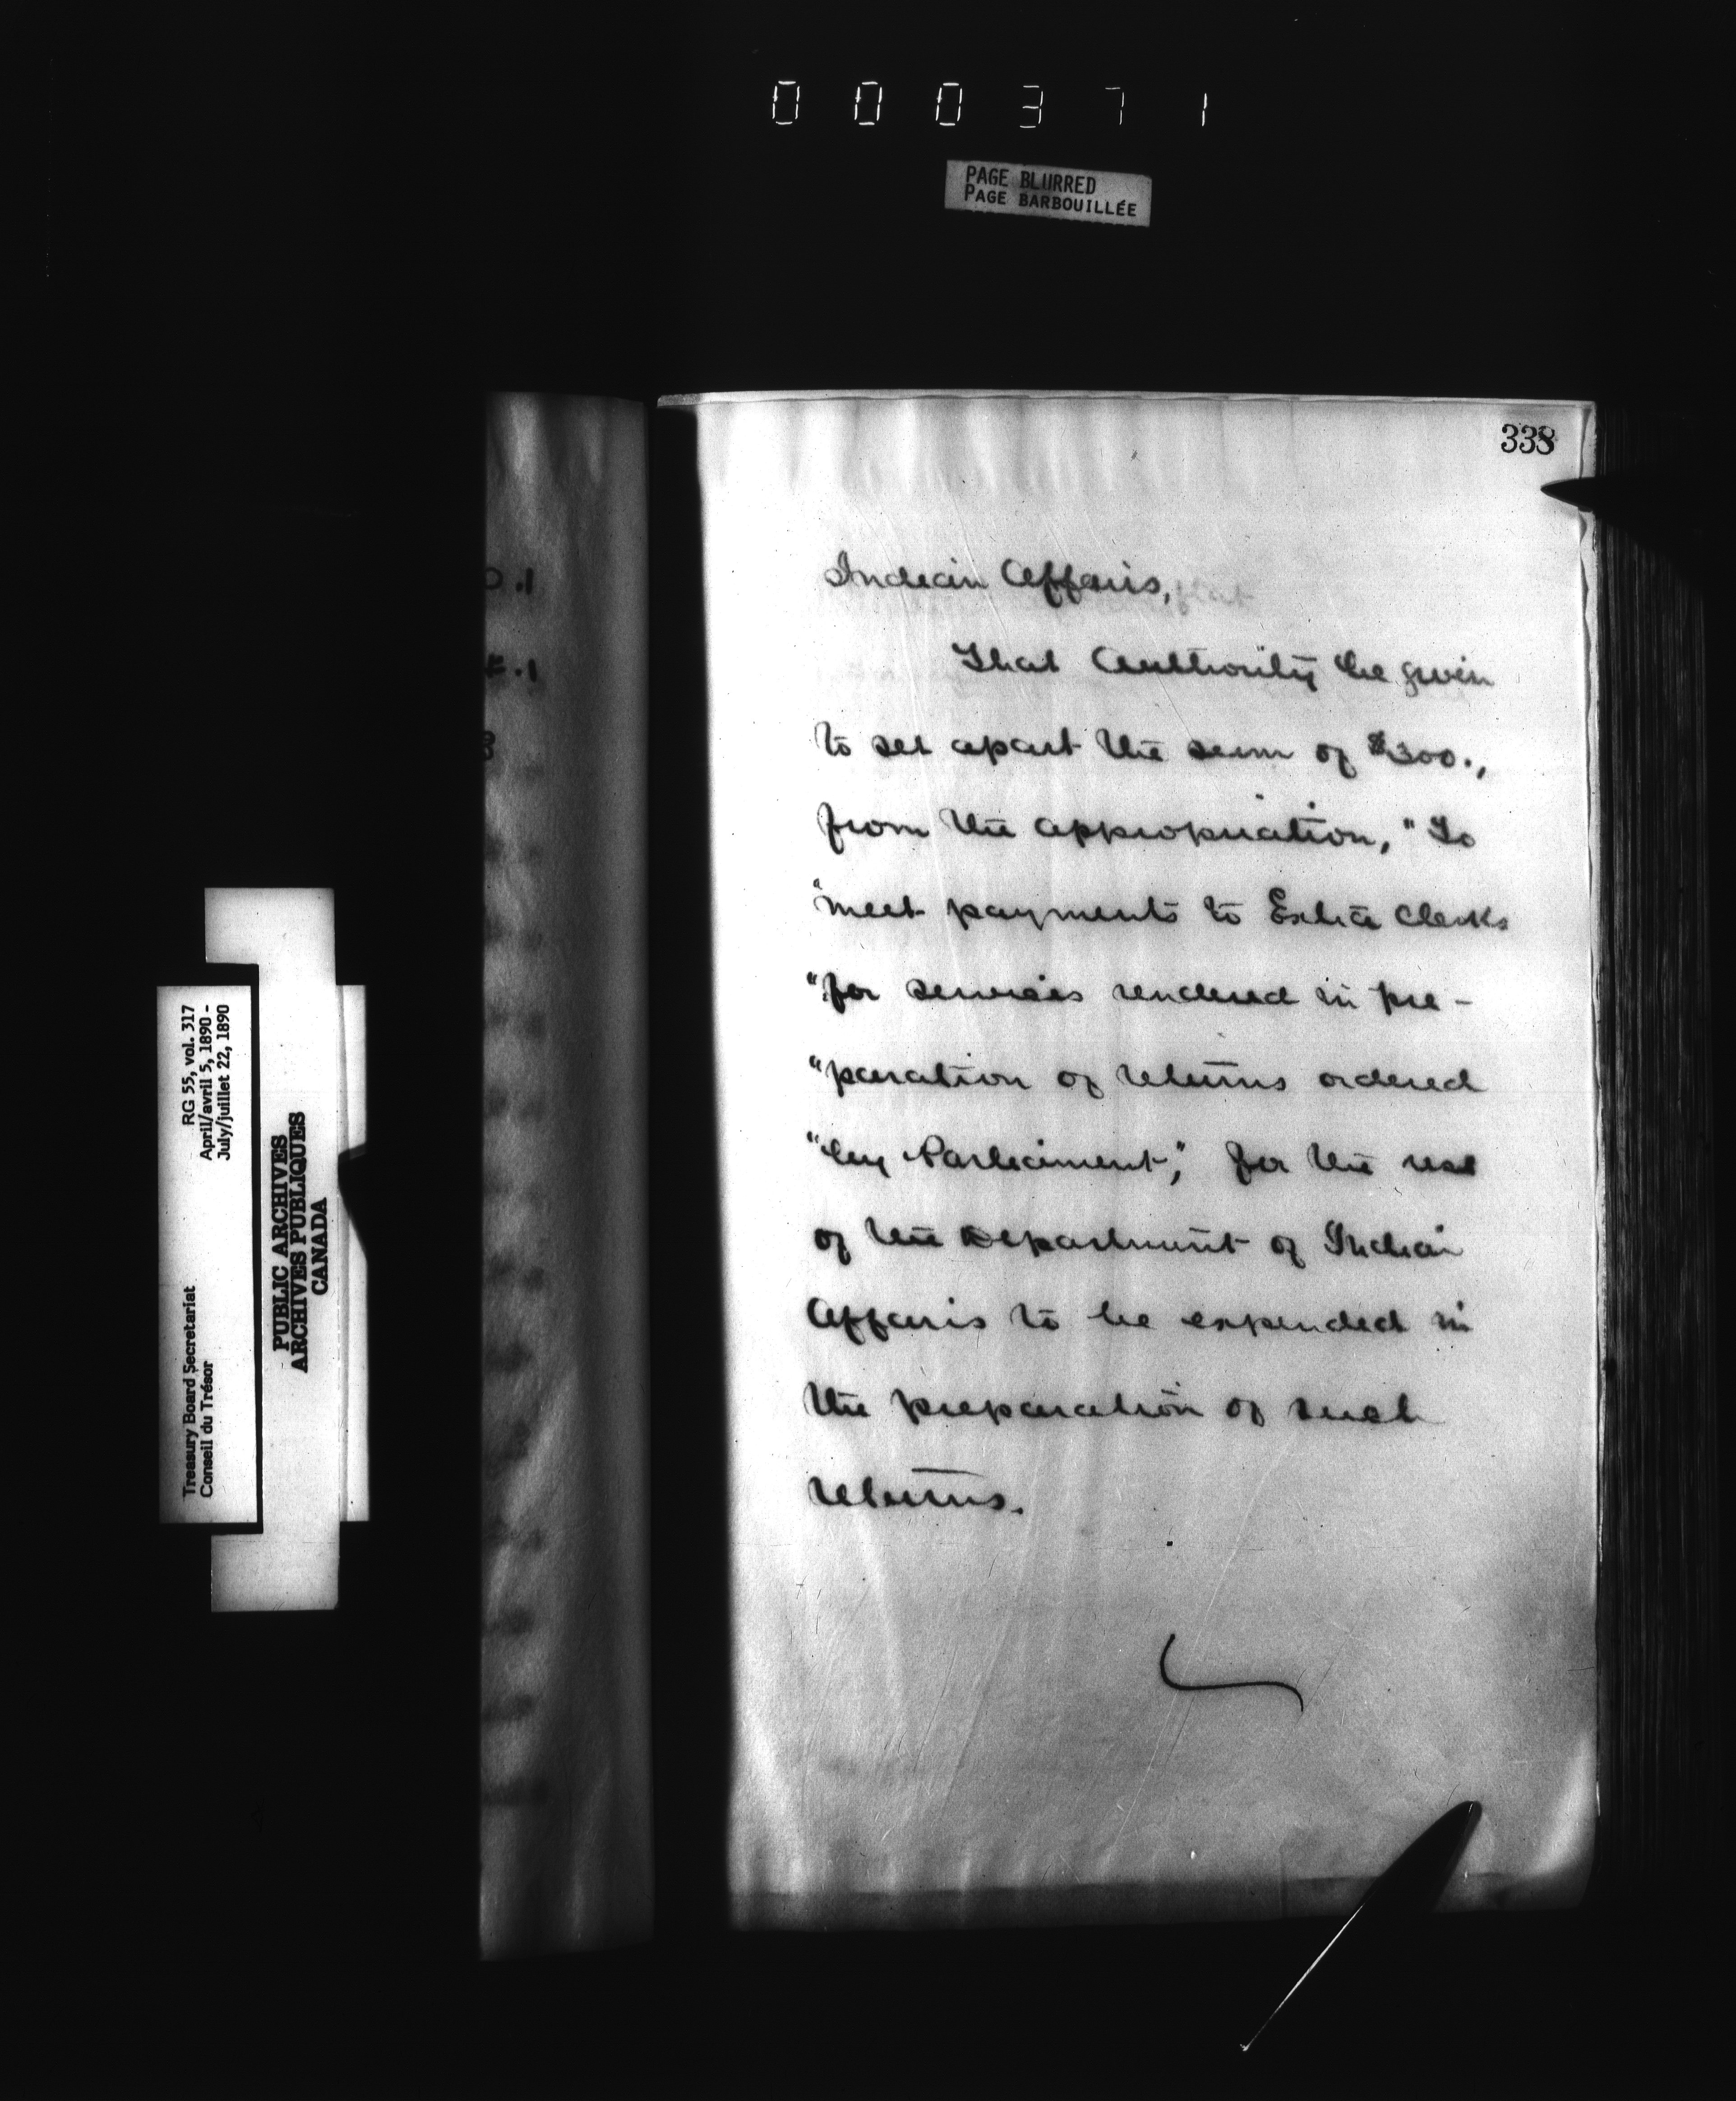 000371
PAGE BLURRED
PAGE BARBOUILLÉE
338
Indian Affairs,
That Authority be given
to set apart the sum of $300.,
from the appropriation, "To
"meet payments to Extra Clerks
"for services rendered in pre-
"paration of returns ordered
"by Parliament," for the use
of the Department of Indian
Affairs to be expended in
the preparation of such
returns.
RG 55, vol. 317
April/avril 5, 1890 -
July/juillet 22, 1890
Treasury Board Secretariat
Conseil du Trésor
PUBLIC ARCHIVES
ARCHIVES PUBLIQUES
CANADA